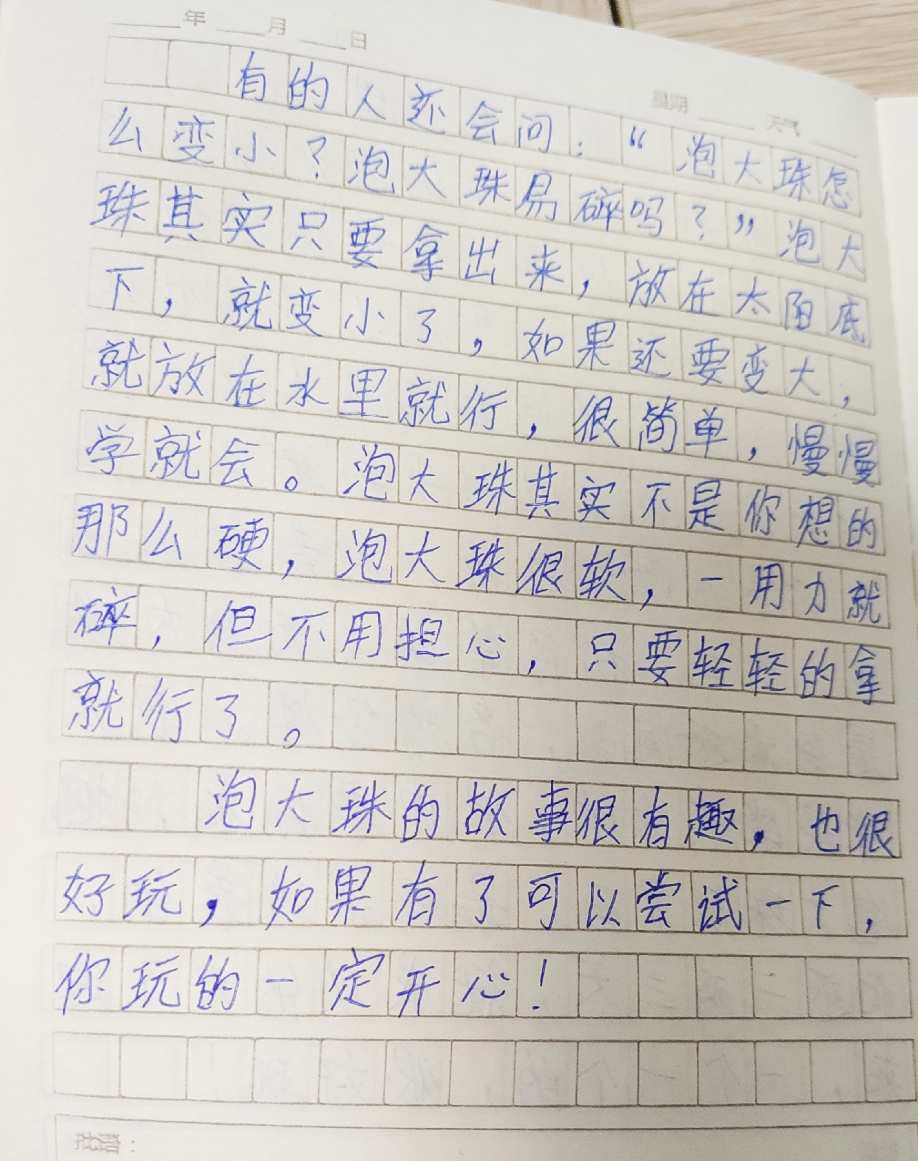 年 月 日
星期 天气
有的人还会问：“泡大珠怎
么变小？泡大珠易碎吗？”泡大
珠其实只要拿出来，放在太阳底
下，就变小了，如果还要变大，
就放在水里就行，很简单，慢慢
学就会。泡大珠其实不是你想的
那么硬，泡大珠很软，一用力就
碎，但不用担心，只要轻轻的拿
就行了。
泡大珠的故事很有趣，也很
好玩，如果有了可以尝试一下，
你玩的一定开心！